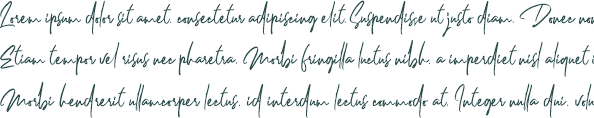 Lorem ipsum dolor sit amet, consectetur adipiscing elit. Suspendisse ut justo diam. Donec non
Etiam tempor vel risus nec pharetra. Morbi fringilla luctus nibh, a imperdiet nisl aliquet
Morbi hendrerit ullamcorper lectus, id interdum lectus commodo at. Integer nulla dui, volu